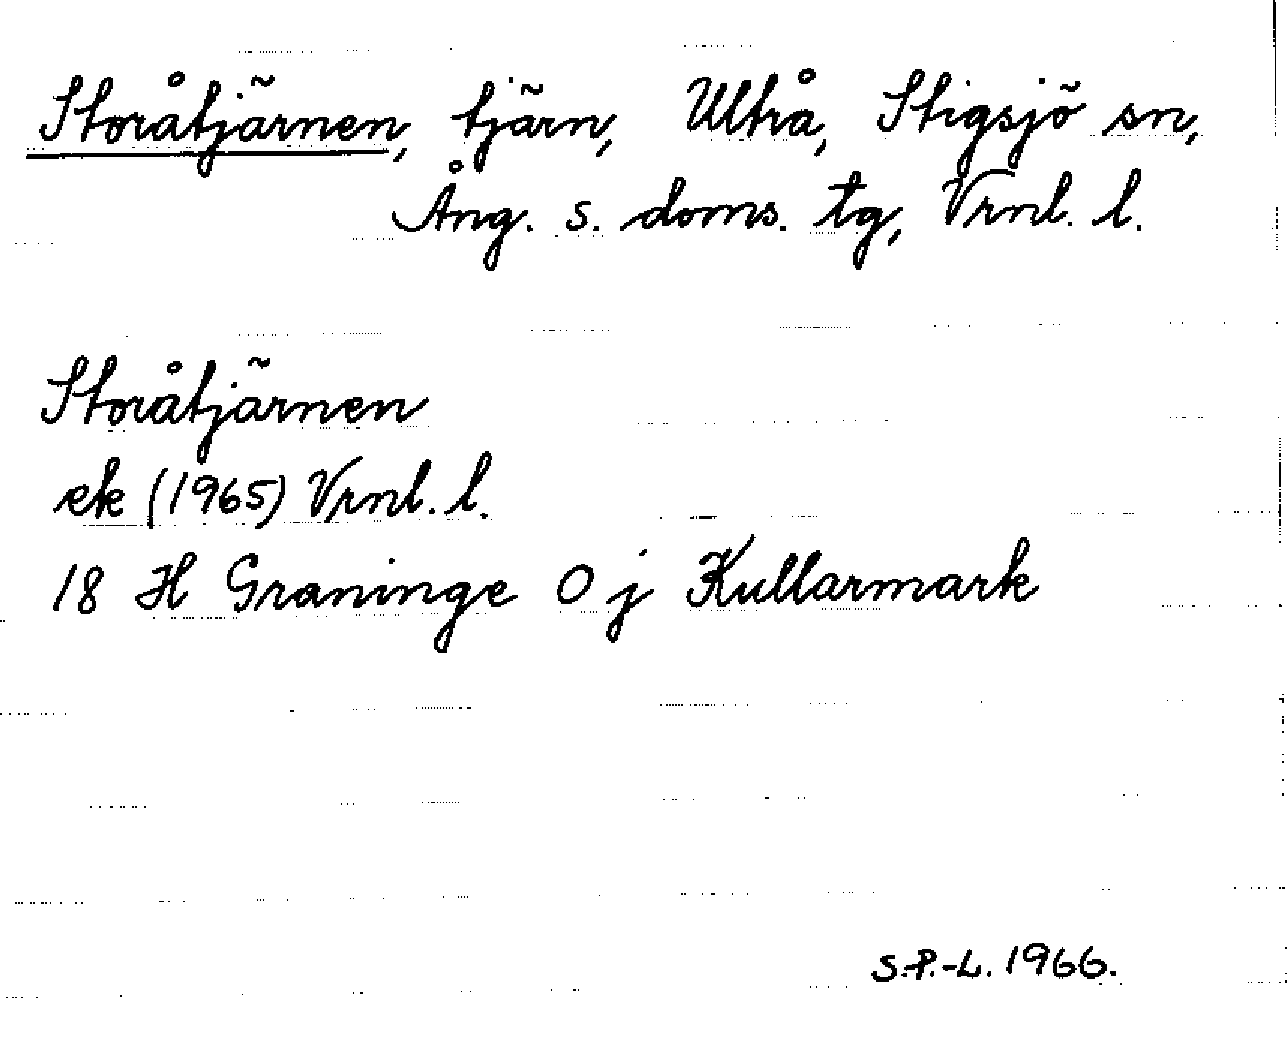 Storåtjärnen, tjärn, Ultrå, Stigsjö sn,
Ång. s. doms. tg, Vrnl. l.
Storåtjärnen
ek (1965) Vrnl. l.
18 H Graninge 0 j Kullarmark
S.-P.-L. 1966.